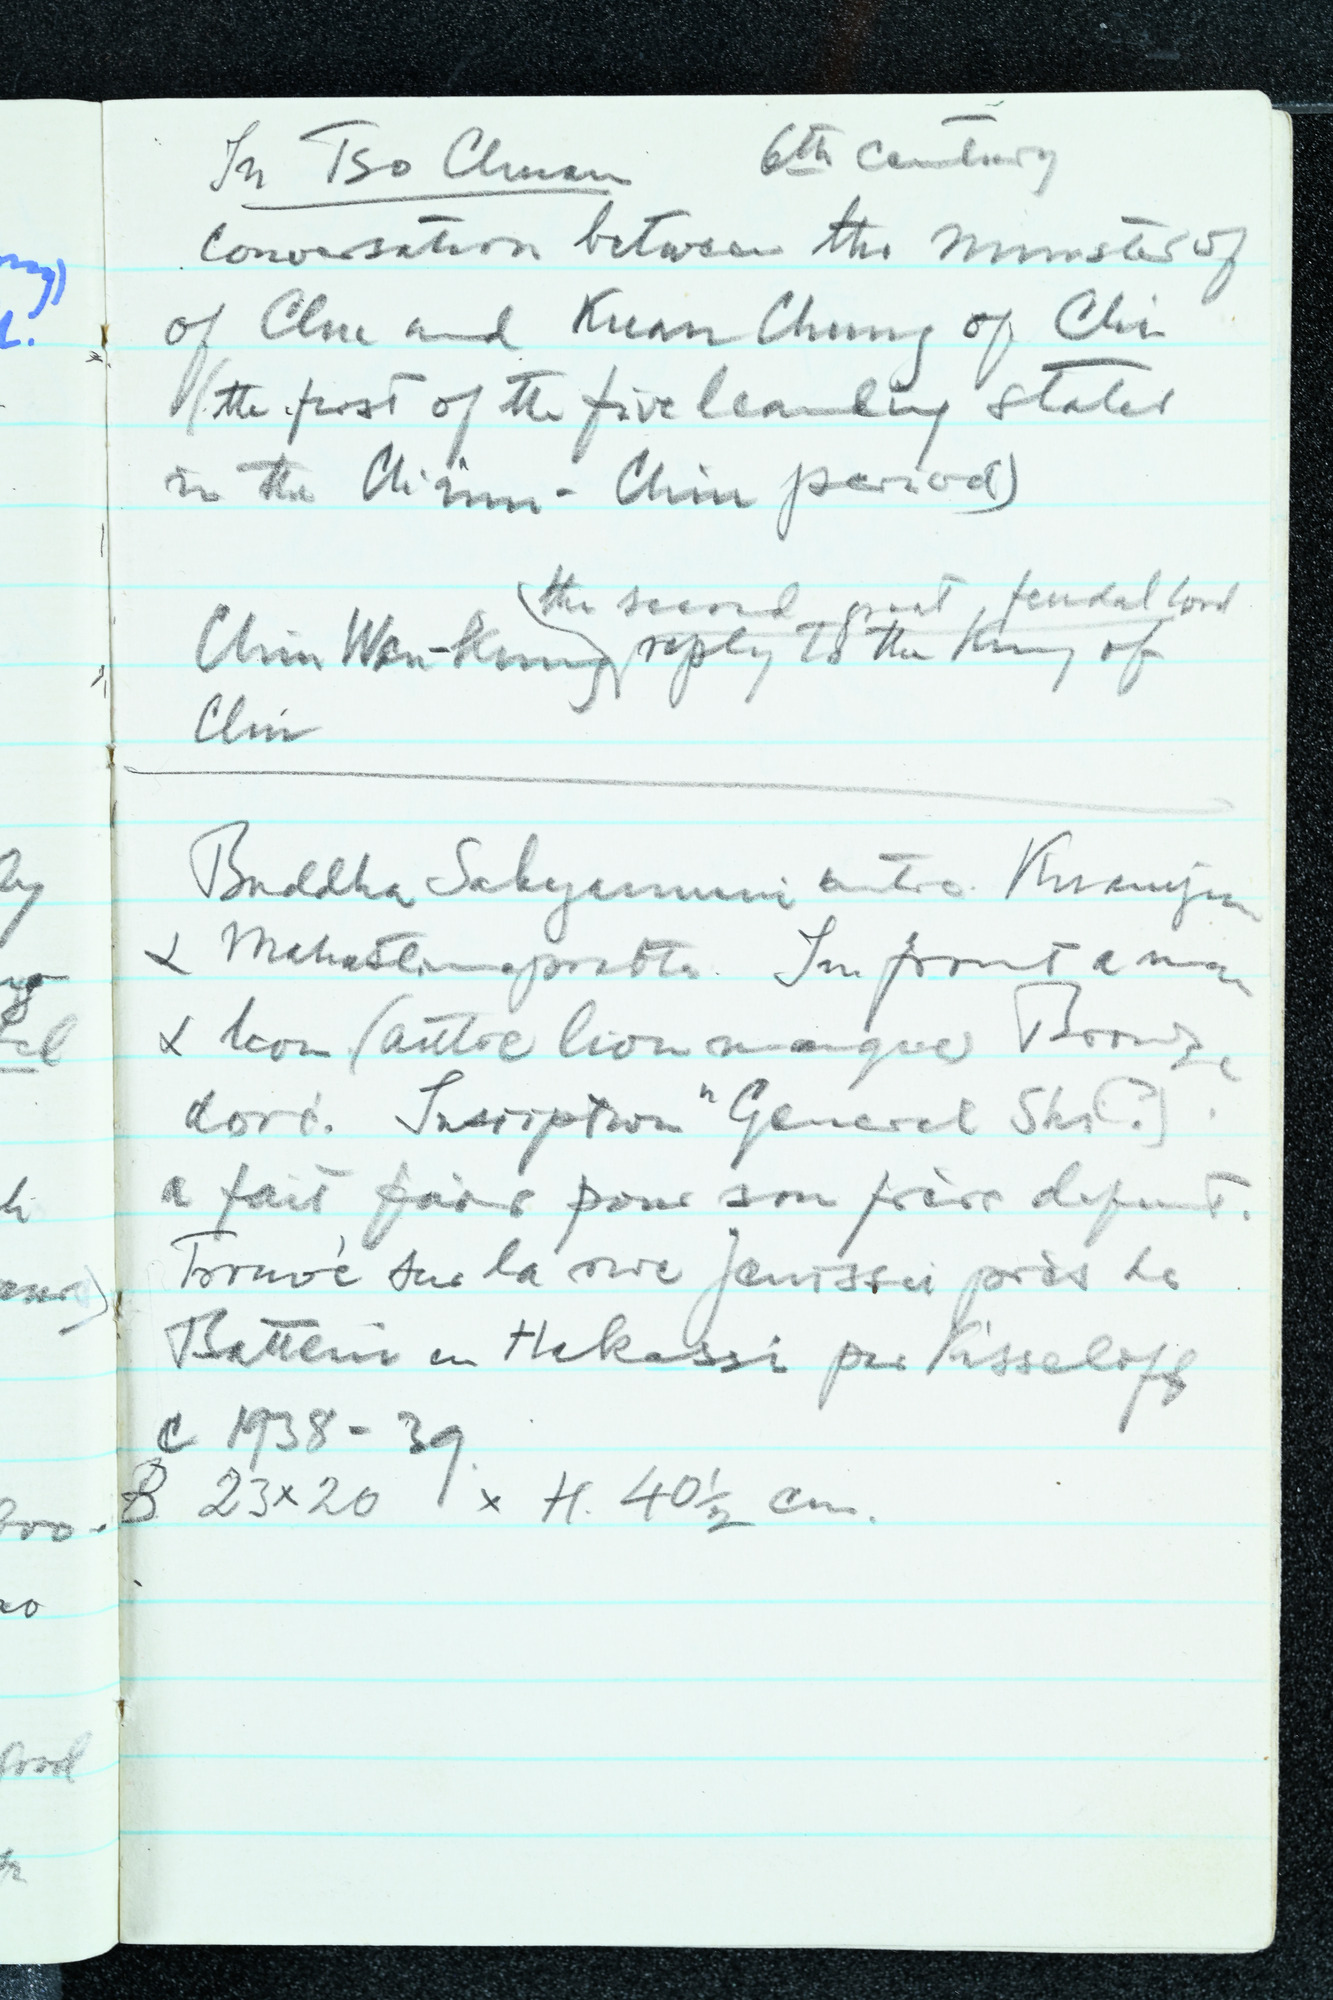 In Tso Chuan 6th century
conversation between the minister of
of Chu and Kuan Chung of Chi
(the first of the five leading states
in the Ch'unn-Chiu period)
(the second great feudal lord
Chin Wen-Kung) reply to the King of
Chin
Buddha Sakyamuni entre Kwanyin
& Mahasthamaprabta. In front a man
& lion (autre lion manque) Bronze
doré. Inscription "General Shi(?)
a fait faire pour son frère defunt.
Trouvé sur la rive Jenissei près de
Batteni en Hakassi par Kisseloff
c 1938-39.
B 23x20 x H. 40½ cm.